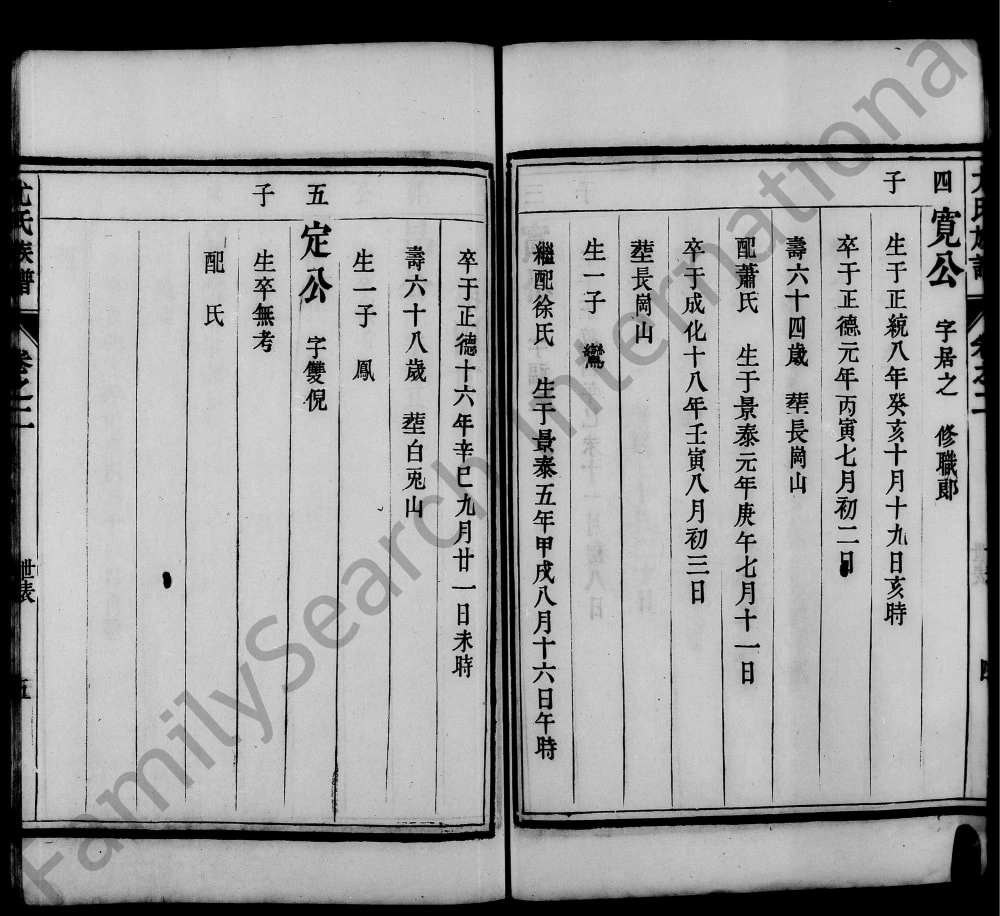 尤氏族譜 卷之二 世表 四
四子 寬公 字居之 修職郎
生于正統八年癸亥十月十九日亥時
卒于正德元年丙寅七月初二日
壽六十四歲 塟長崗山
配蕭氏 生于景泰元年庚午七月十一日
卒于成化十八年壬寅八月初三日
塟長崗山
生一子 鸞
繼配徐氏 生于景泰五年甲戌八月十六日午時
卒于正德十六年辛巳九月廿一日未時
壽六十八歲 塟白兎山
生一子 鳳
五子 定公 字雙倪
生卒無考
配 氏
尤氏族譜 卷之二 世表 五
FamilySearch International